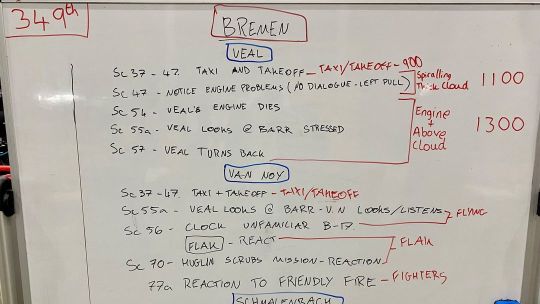 349th
BREMEN
VEAL
Sc 37 - 47. TAXI AND TAKEOFF - TAXI/TAKEOFF - 900
Sc 47 - NOTICE ENGINE PROBLEMS (NO DIALOGUE - LEFT PULL) Spiralling Thick Cloud 1100
Sc 54 - VEAL'S ENGINE DIES
Sc 55a - VEAL LOOKS @ BARR STRESSED
Sc 57 - VEAL TURNS BACK
Engine + Above Cloud 1300
VAN NOY
Sc 37-47. TAXI + TAKEOFF - TAXI/TAKEOFF
Sc 55a - VEAL LOOKS @ BARR - V.N LOOKS/LISTENS FLYING
Sc 56 - CLOCK UNFAMILIAR B-17.
FLAK - REACT FLAK
Sc 70 - HUGLIN SCRUBS MISSION - REACTION
77a REACTION TO FRIENDLY FIRE - FIGHTERS
SCHMALENBACH